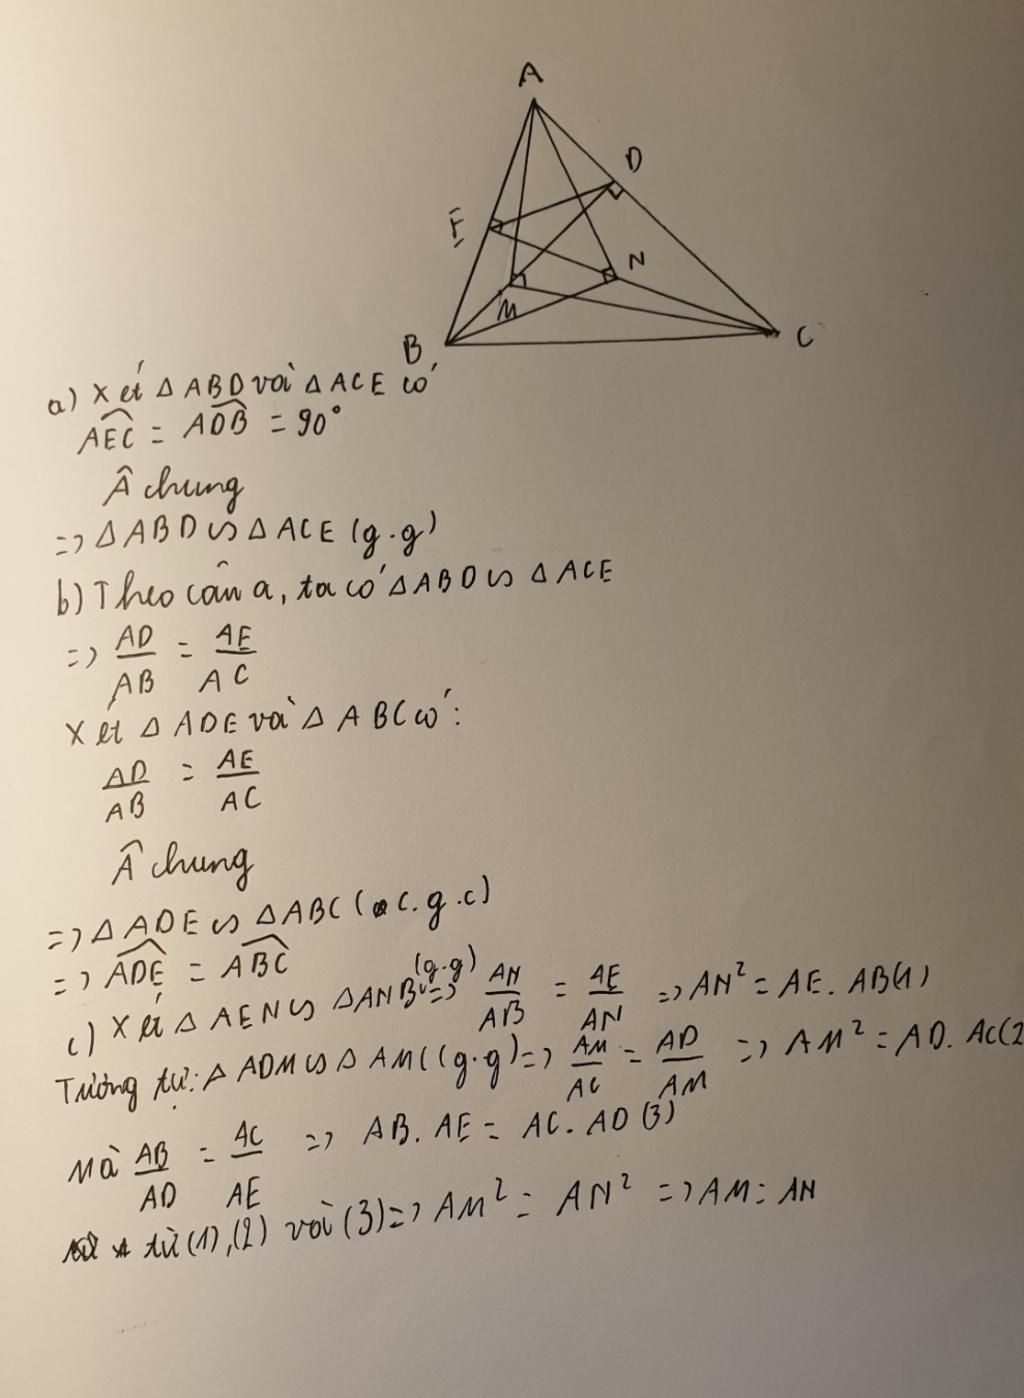 A
D
E
N
M
B
C
a) Xét Δ ABD với Δ ACE có
AEC = ADB = 90°
Â chung
=> Δ ABD ∽ Δ ACE (g.g)
b) Theo câu a, ta có Δ ABD ∽ Δ ACE
=> AD/AB = AE/AC
Xét Δ ADE và Δ ABC có:
AD/AB = AE/AC
Â chung
=> Δ ADE ∽ Δ ABC (c.g.c)
=> ADE = ABC
c) Xét Δ AEN ∽ Δ ANB (g.g) => AN/AB = AE/AN => AN² = AE. AB (1)
Tương tự: Δ ADM ∽ Δ AMC (g.g) => AM/AC = AD/AM => AM² = AD. AC (2
Mà AB/AD = AC/AE => AB. AE = AC. AD (3)
từ (1), (2) với (3) => AM² = AN² => AM = AN